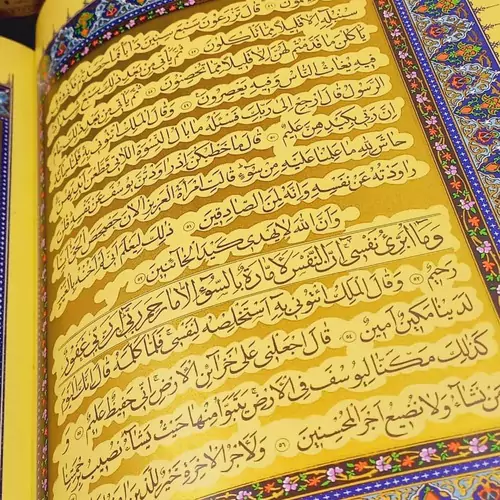 قَالَ تَزْرَعُونَ سَبْعَ سِنِينَ دَأَبًا فَمَا
سُنْبُلِهِ إِلَّا قَلِيلًا مِمَّا تَأْكُلُونَ ثُمَّ يَأْتِي مِنْ بَعْدِ ذَلِكَ سَبْعٌ
يَأْكُلْنَ مَا قَدَّمْتُمْ لَهُنَّ إِلَّا قَلِيلًا مِمَّا تُحْصِنُونَ ثُمَّ يَأْتِي مِنْ بَعْدِ ذَلِكَ
فِيهِ يُغَاثُ النَّاسُ وَفِيهِ يَعْصِرُونَ وَقَالَ الْمَلِكُ ائْتُونِي
الرَّسُولُ قَالَ ارْجِعْ إِلَى رَبِّكَ فَسْئَلْهُ مَا بَالُ النِّسْوَةِ اللَّاتِي قَطَّعْنَ
إِنَّ رَبِّي بِكَيْدِهِنَّ عَلِيمٌ قَالَ مَا خَطْبُكُنَّ إِذْ رَاوَدْتُنَّ يُوسُفَ عَنْ نَفْسِهِ قُلْنَ
حَاشَ لِلَّهِ مَا عَلِمْنَا عَلَيْهِ مِنْ سُوءٍ قَالَتِ امْرَأَةُ الْعَزِيزِ الْآنَ حَصْحَصَ الْحَقُّ
رَاوَدْتُهُ عَنْ نَفْسِهِ وَإِنَّهُ لَمِنَ الصَّادِقِينَ ٥١ ذَلِكَ لِيَعْلَمَ أَنِّي لَمْ أَخُنْهُ
وَأَنَّ اللَّهَ لَا يَهْدِي كَيْدَ الْخَائِنِينَ ٥٢
وَمَا أُبَرِّئُ نَفْسِي إِنَّ النَّفْسَ لَأَمَّارَةٌ بِالسُّوءِ إِلَّا مَا رَحِمَ رَبِّي إِنَّ رَبِّي غَفُورٌ
رَحِيمٌ ٥٣ وَقَالَ الْمَلِكُ ائْتُونِي بِهِ أَسْتَخْلِصْهُ لِنَفْسِي فَلَمَّا كَلَّمَهُ قَالَ إِنَّكَ الْيَوْمَ
لَدَيْنَا مَكِينٌ أَمِينٌ ٥٤ قَالَ اجْعَلْنِي عَلَى خَزَائِنِ الْأَرْضِ إِنِّي حَفِيظٌ عَلِيمٌ ٥٥
كَذَلِكَ مَكَّنَّا لِيُوسُفَ فِي الْأَرْضِ يَتَبَوَّأُ مِنْهَا حَيْثُ يَشَاءُ نُصِيبُ بِرَحْمَتِنَا
مَنْ نَشَاءُ وَلَا نُضِيعُ أَجْرَ الْمُحْسِنِينَ ٥٦ وَلَأَجْرُ الْآخِرَةِ خَيْرٌ لِلَّذِينَ